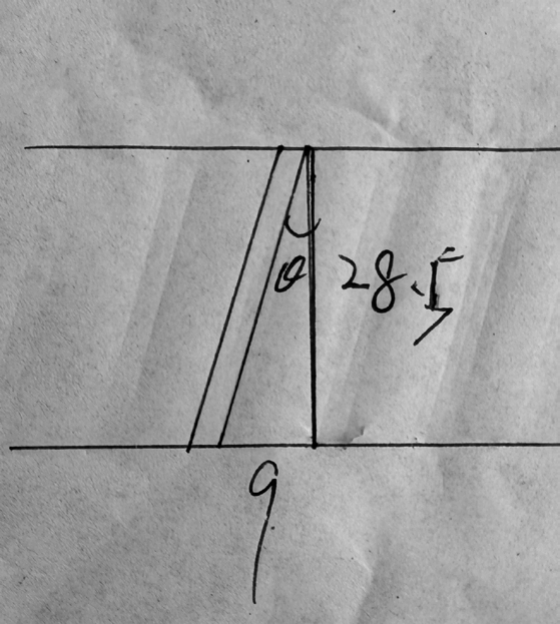 θ 28.5
9